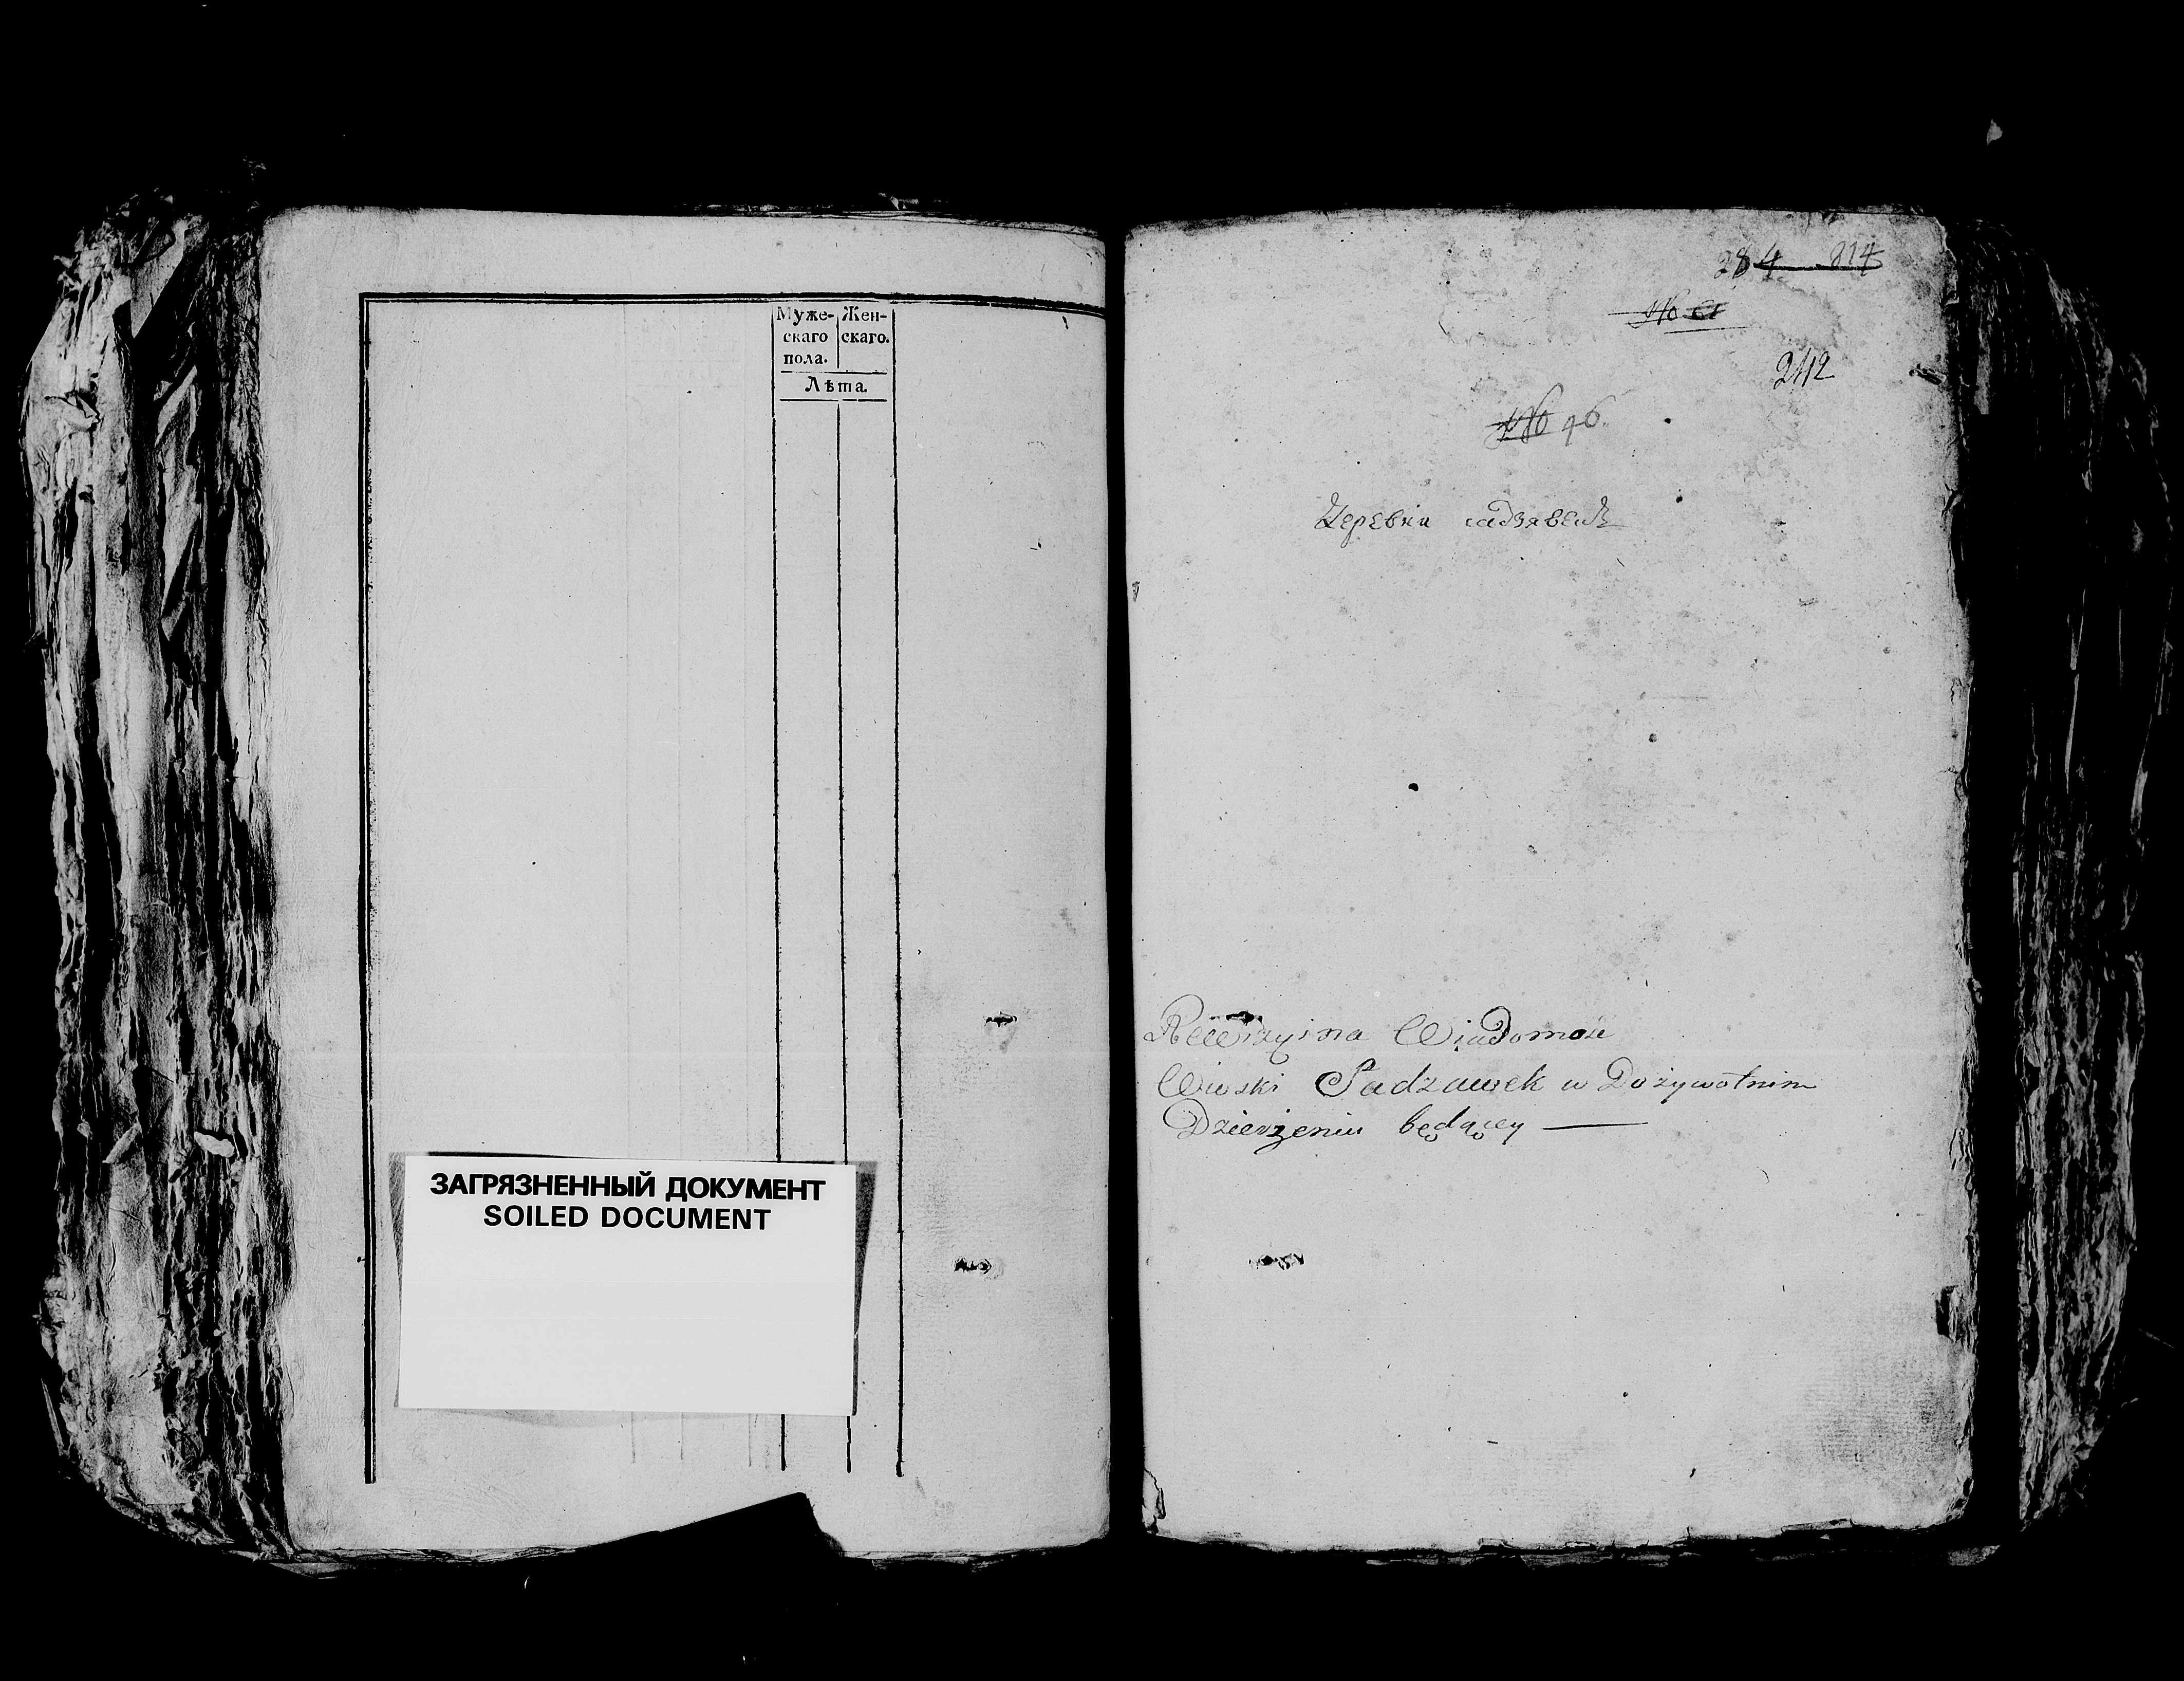 Муже-
скаго
пола.
Жен-
скаго.
Лѣта.
ЗАГРЯЗНЕННЫЙ ДОКУМЕНТ
SOILED DOCUMENT
284 814
No
242
No 96.
Деревни садзавекъ
Rewizyina Wiadomość
Wioski Sadzawek w Dożywotnim
Dzierżeniu będącey —